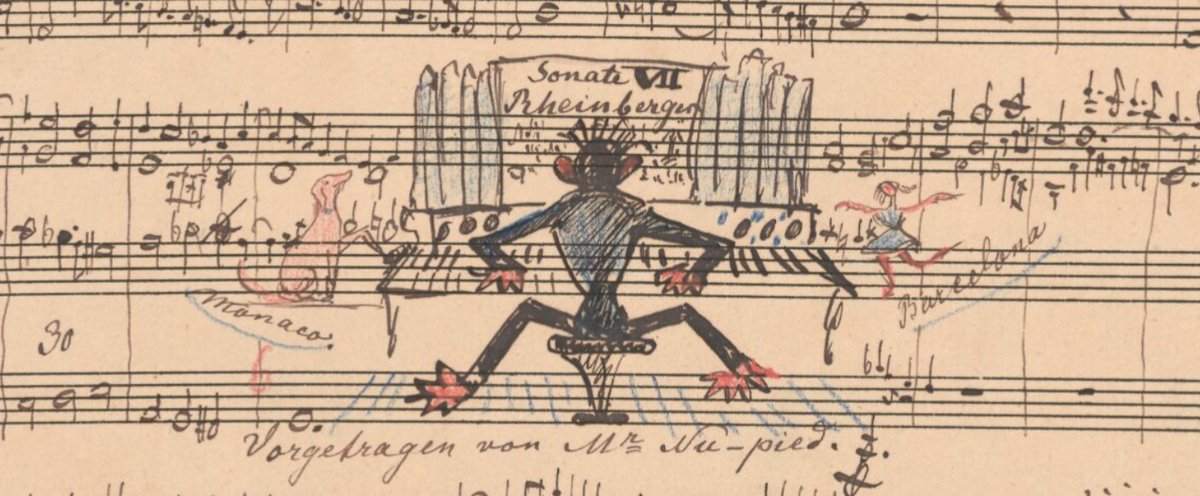 Sonate VII
Rheinberger
Monaco.
Barcelona
30
Vorgetragen von Mr Nu-pied.